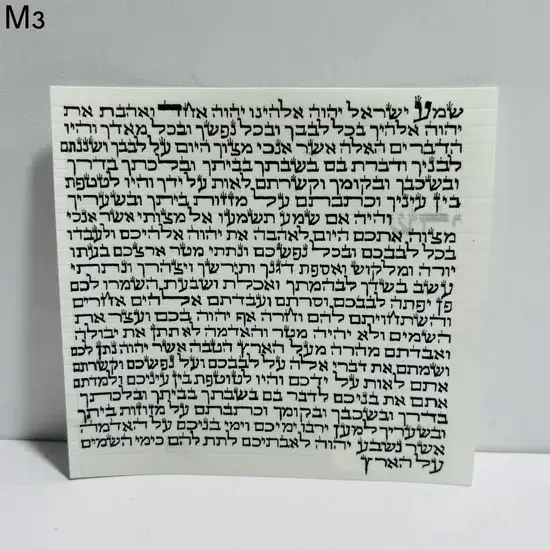 M3
שמע ישראל יהוה אלהינו יהוה אחד ואהבת את
יהוה אלהיך בכל לבבך ובכל נפשך ובכל מאדך והיו
הדברים האלה אשר אנכי מצוך היום על לבבך ושננתם
לבניך ודברת בם בשבתך בביתך ובלכתך בדרך
ובשכבך ובקומך וקשרתם לאות על ידך והיו לטטפת
בין עיניך וכתבתם על מזזות ביתך ובשעריך
והיה אם שמע תשמעו אל מצותי אשר אנכי
מצוה אתכם היום לאהבה את יהוה אלהיכם ולעבדו
בכל לבבכם ובכל נפשכם ונתתי מטר ארצכם בעתו
יורה ומלקוש ואספת דגנך ותירשך ויצהרך ונתתי
עשב בשדך לבהמתך ואכלת ושבעת השמרו לכם
פן יפתה לבבכם וסרתם ועבדתם אלהים אחרים
והשתחויתם להם וחרה אף יהוה בכם ועצר את
השמים ולא יהיה מטר והאדמה לא תתן את יבולה
ואבדתם מהרה מעל הארץ הטבה אשר יהוה נתן לכם
ושמתם את דברי אלה על לבבכם ועל נפשכם וקשרתם
אתם לאות על ידכם והיו לטוטפת בין עיניכם ולמדתם
אתם את בניכם לדבר בם בשבתך בביתך ובלכתך
בדרך ובשכבך ובקומך וכתבתם על מזוזות ביתך
ובשעריך למען ירבו ימיכם וימי בניכם על האדמה
אשר נשבע יהוה לאבתיכם לתת להם כימי השמים
על הארץ